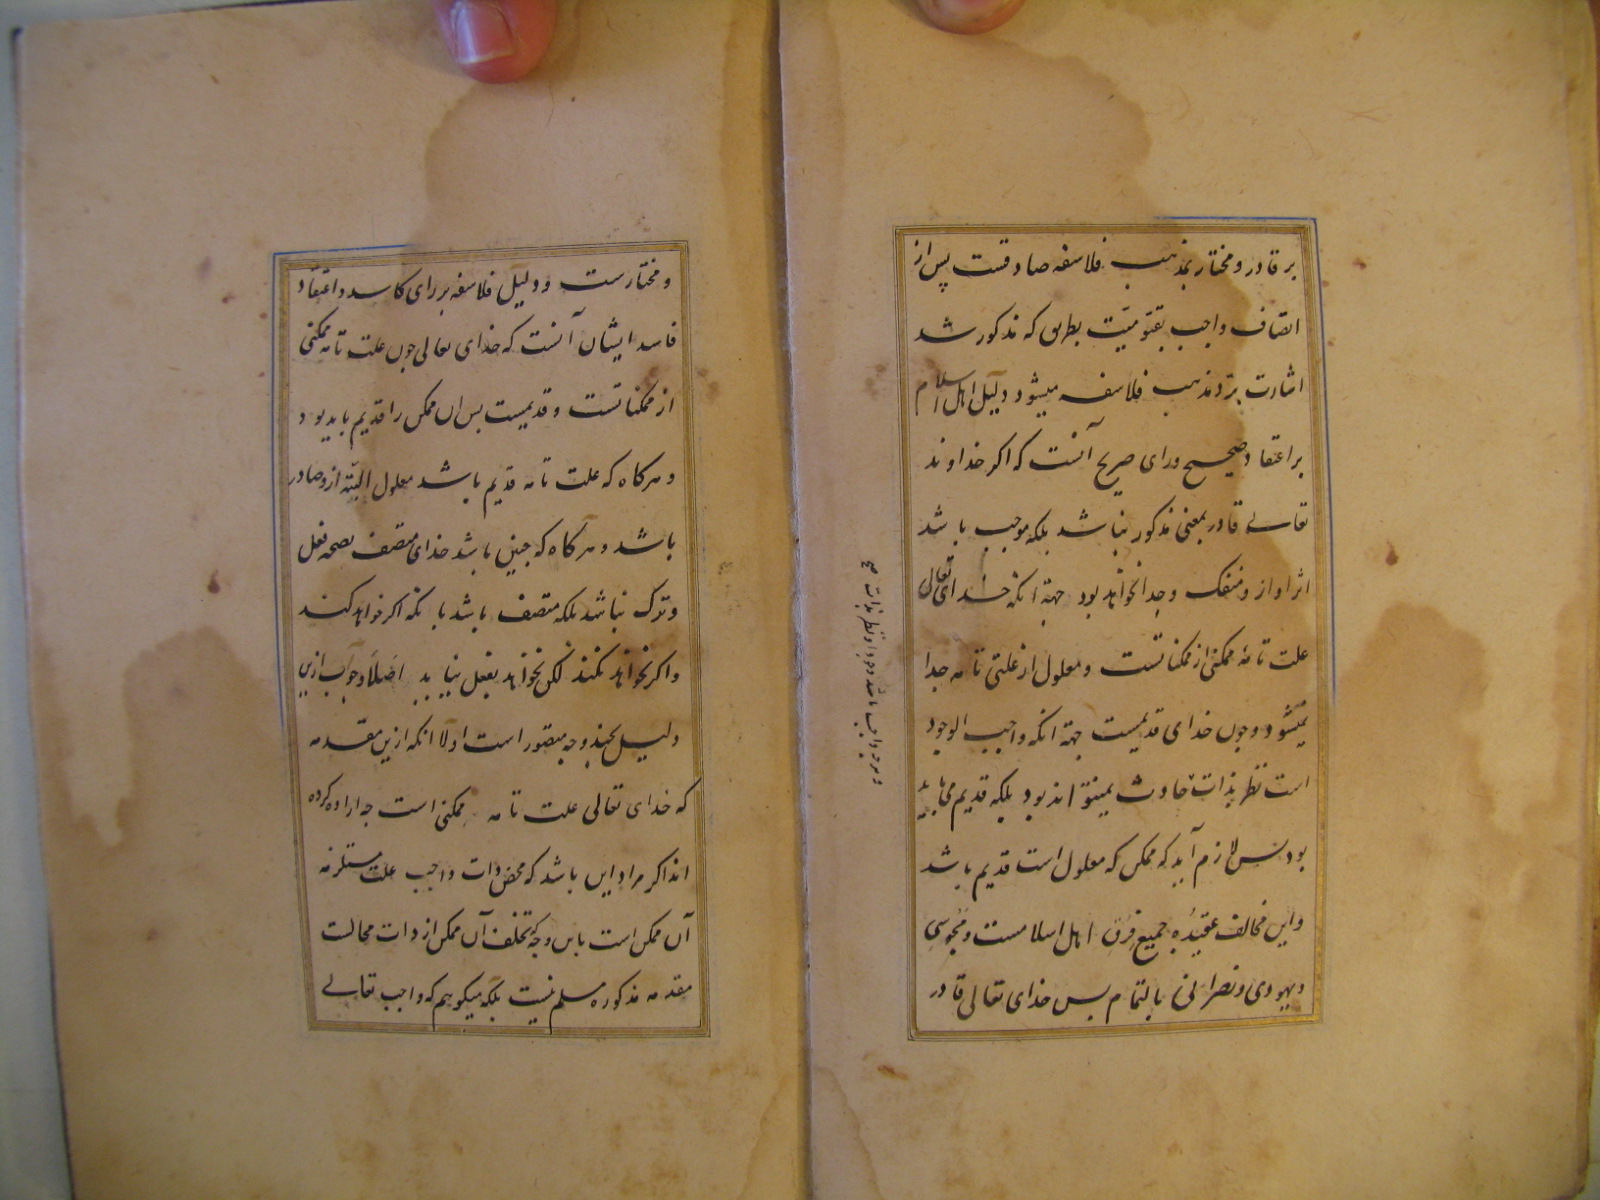 بر قادر و مختار بمذهب فلاسفه صادقست پس از
اتصاف واجب بقیومیت بطریق که مذکور شد
اشارت برد مذهب فلاسفه میشود دلیل اهل اسلام
بر اعتقاد صحیح و رای صریح آنست که اکر خداوند
تعالی قادر بمعنی مذکور نباشد بلکه موجب باشد
اثر او از و منفک و جدا نخواهد بود جهة انکه خدای تعالی
علت تامهٔ ممکنی از ممکناتست و معلول از علتی تامه جدا
نمیشود و چون خدای قدیمست جهة انکه واجب الوجود
است نظر بذات حادث نمیتواند بود بلکه قدیم می باید
بود پس لازم آید که ممکن که معلول است قدیم باشد
و این مخالف عقیدهٔ جمیع فرق اهل اسلامست و مجوسی
و یهودی و نصرانی بالتمام پس خدای تعالی قادر
و هرچه واجب باشد وجود او نظر بذات صح
و مختارست و دلیل فلاسفه بر رای کاسد و اعتقاد
فاسد ایشان آنست که خدای تعالی چون علت تامه ممکنی
از ممکناتست و قدیمست پس ان ممکن را قدیم باید بود
و هرکاه که علت تامه قدیم باشد معلول البته از و صادر
باشد و هرکاه که چنین باشد خدای متصف بصحه فعل
و ترک نباشد بلکه متصف باشد با نکه اکر خواهد کند
و اکر نخواهد نکند لکن نخواهد بفعل نیاید اصلا و جواب ازین
دلیل بچند وجه متصور است اولا انکه ازین مقدمه
که خدای تعالی علت تامه ممکنی است چه اراده کرده
اند اکر مراد این باشد که محض ذات واجب علت مستلزمه
آن ممکن است باین وجه که تخلف آن ممکن از ذات محالست
مقدمه مذکوره مسلم نیست بلکه میکوییم که واجب تعالی